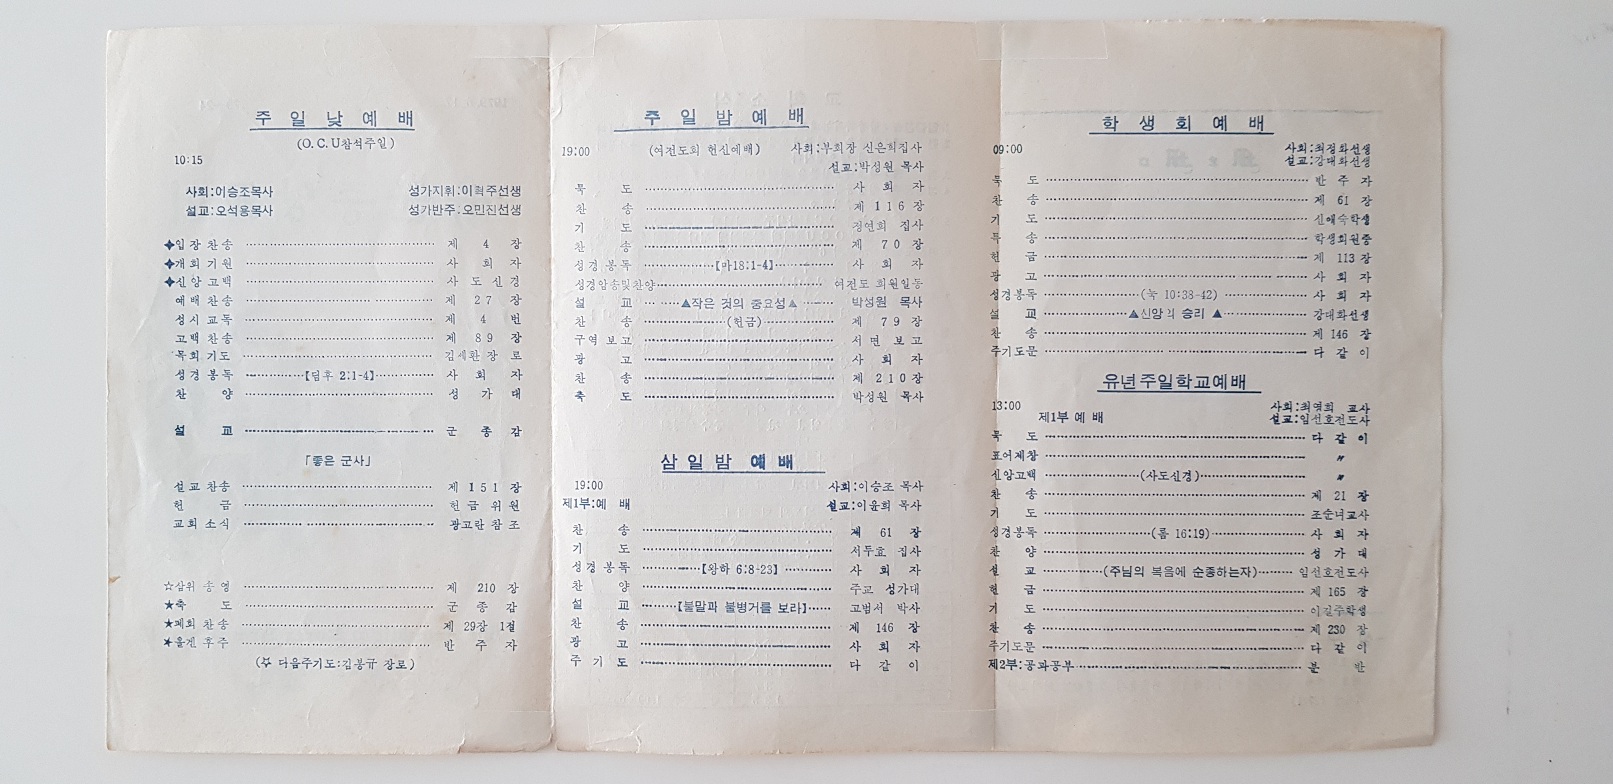 주 일 낮 예 배
(O.C.U참석주일)
10:15
사회:이승조목사 성가지휘:이혁주선생
설교:오석용목사 성가반주:오민진선생
✦입장찬송 제 4 장
✦개회기원 사 회 자
✦신앙고백 사도신경
예배찬송 제 27 장
성시교독 제 4 번
고백찬송 제 89 장
목회기도 김세환장로
성경봉독 【딤후 2:1-4】 사 회 자
찬 양 성 가 대
설 교 군 종 감
「좋은 군사」
설교찬송 제 151 장
헌 금 헌금위원
교회소식 광고란참조
☆삼위송영 제 210 장
★축 도 군 종 감
★폐회찬송 제 29장 1절
★올겐후주 반 주 자
(✡ 다음주기도:김봉규 장로)
주 일 밤 예 배
19:00 (여전도회 헌신예배) 사회:부회장 신은희집사
설교:박성원 목사
묵 도 사 회 자
찬 송 제 116 장
기 도 정연희 집사
찬 송 제 70 장
성경봉독 【마18:1-4】 사 회 자
성경암송및찬양 여전도 회원일동
설 교 ▲작은 것의 중요성▲ 박성원 목사
찬 송 (헌금) 제 79 장
구역보고 서면 보고
광 고 사 회 자
찬 송 제 210 장
축 도 박성원 목사
삼 일 밤 예 배
19:00 사회:이승조 목사
제1부:예 배 설교:이윤희 목사
찬 송 제 61 장
기 도 서두효 집사
성경봉독 【왕하 6:8-23】 사 회 자
찬 양 주교 성가대
설 교 【불말과 불병거를 보라】 고범서 박사
찬 송 제 146 장
광 고 사 회 자
주기도 다 같 이
학 생 회 예 배
09:00 사회:최정화선생
설교:강대화선생
묵 도 반 주 자
찬 송 제 61 장
기 도 신애숙학생
특 송 학생회원중
헌 금 제 113 장
광 고 사 회 자
성경봉독 (눅 10:38-42) 사 회 자
설 교 ▲신앙의 승리 ▲ 강대화선생
찬 송 제 146 장
주기도문 다 같 이
유년주일학교예배
13:00 사회:최영희 교사
제1부 예 배 설교:임선호전도사
묵 도 다 같 이
표어제창 〃
신앙고백 (사도신경) 〃
찬 송 제 21 장
기 도 조순녀교사
성경봉독 (롬 16:19) 사 회 자
찬 양 성 가 대
설 교 (주님의 복음에 순종하는자) 임선호전도사
헌 금 제 165 장
기 도 이길주학생
찬 송 제 230 장
주기도문 다 같 이
제2부:공과공부 분 반